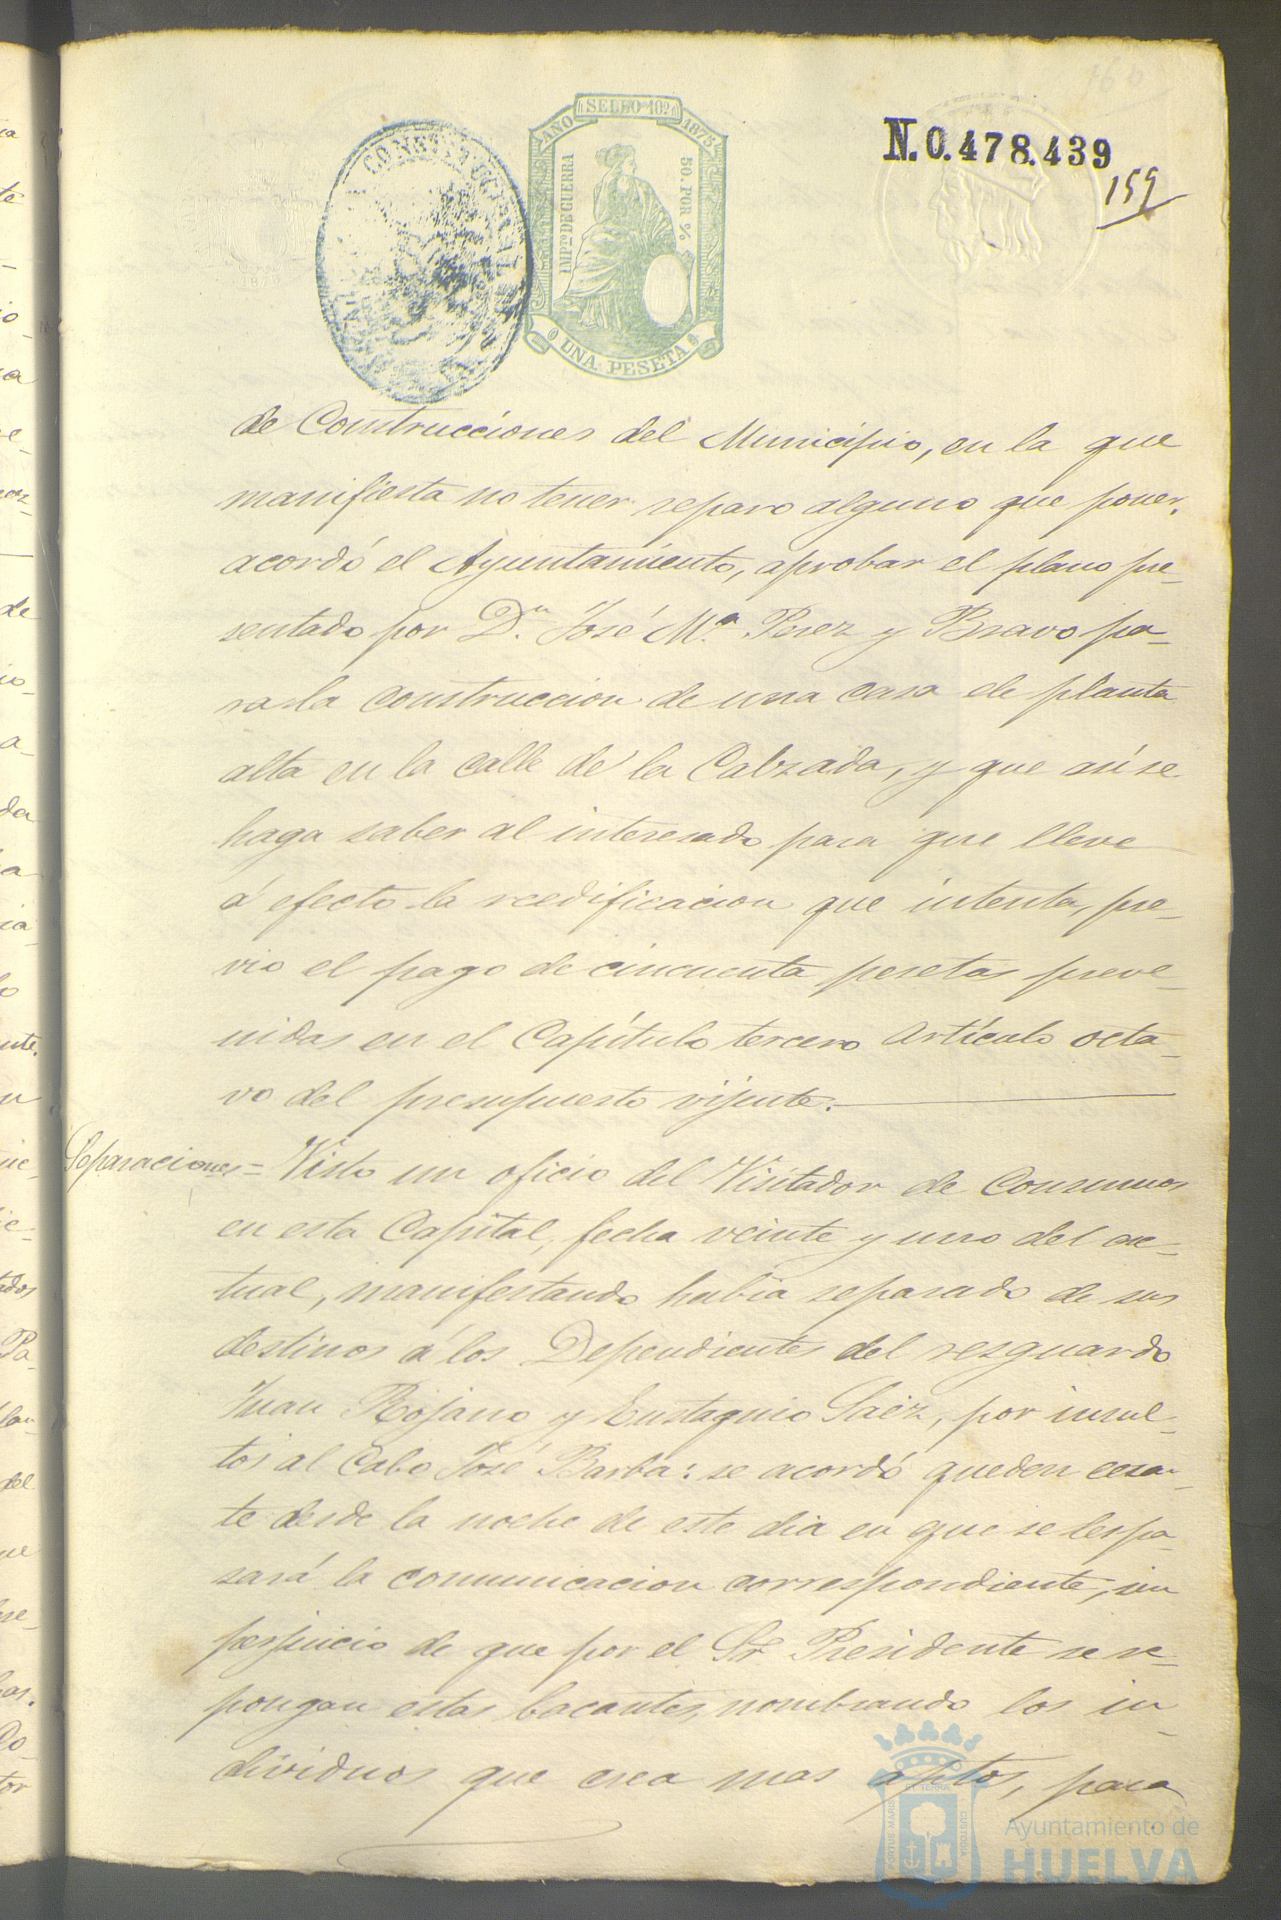 SELLO 10º
AÑO 1875
IMPTO DE GUERRA
50. POR %
UNA PESETA
N.0.478.439
159
de Construcciones del Municipio, en la que
manifiesta no tener reparo alguno que poner,
acordó el Ayuntamiento, aprobar el plano pre-
sentado por D.n José M.a Perez y Bravo pa-
ra la construccion de una casa de planta
alta en la calle de la Calzada, y que así se
haga saber al interesado para que lleve
á efecto la reedificacion que intenta, pre-
vio el pago de cincuenta pesetas preve-
nidas en el Capítulo tercero Artículo octa-
vo del presupuesto vijente.
Separaciones = Visto un oficio del Visitador de Consumos
en esta Capital, fecha veinte y uno del ac-
tual, manifestando habia separado de sus
destinos á los Dependientes del resguardo
Juan Rojano y Eustaquio Saez, por insul-
tos al Cabo José Barba: se acordó queden cesan-
te desde la noche de este dia en que se les pa-
sará la comunicacion correspondiente, sin
perjuicio de que por el Sr. Presidente se re-
pongan estas bacantes, nombrando los in-
dividuos que crea mas aptos, para
PORTUS MARIS ET TERRÆ CUSTODIA
Ayuntamiento de
HUELVA